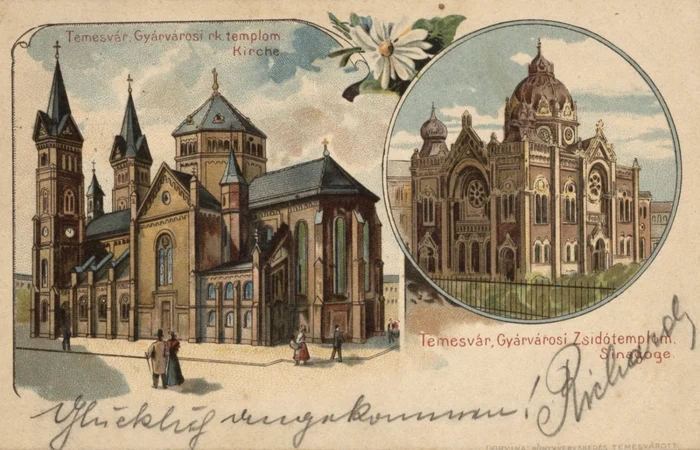 Temesvár, Gyárvárosi rk. templom.
Kirche
Temesvár, Gyárvárosi Zsidótemplom.
Sinagoge.
Glücklich angekommen!
Richard
TEMESVÁROTT.